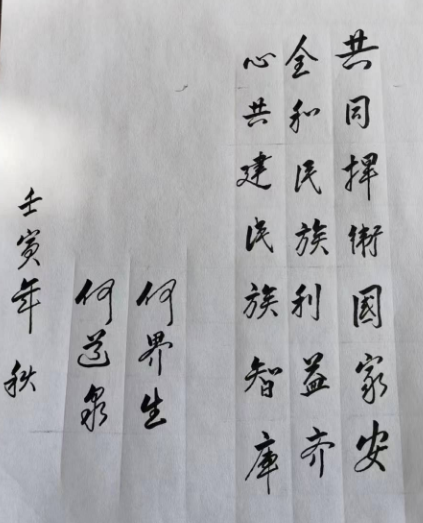 共同捍衛國家安
全和民族利益齐
心共建民族智庫
何界生
何道泉
壬寅年秋